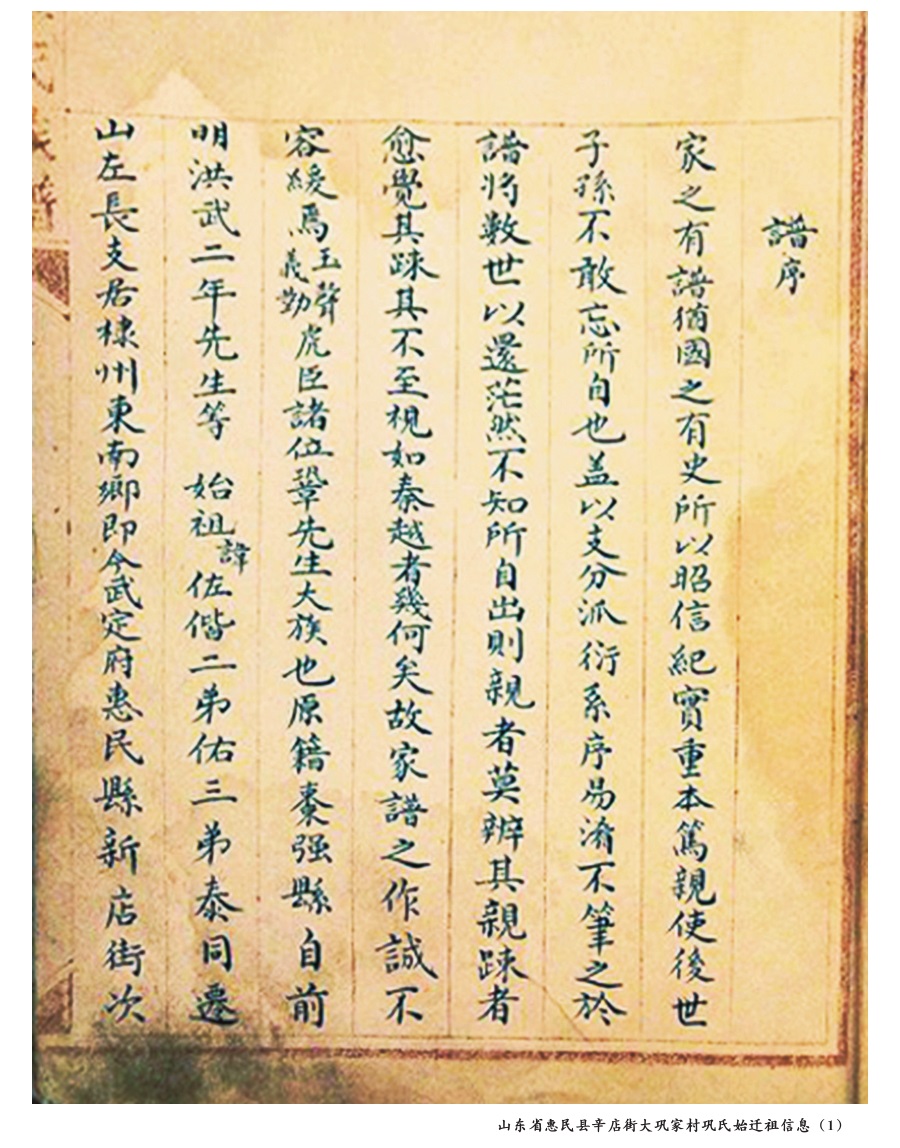 譜序
家之有譜猶國之有史所以昭信紀實重本篤親使後世
子孫不敢忘所自也盖以支分派衍系序易淆不筆之於
譜将數世以還茫然不知所自出則親者莫辨其親踈者
愈覺其踈其不至視如秦越者幾何矣故家譜之作誠不
容緩焉玉聲義勤虎臣諸位鞏先生大族也原籍棗强縣自前
明洪武二年先生等 始祖諱佐偕二弟佑三弟泰同遷
山左長支居棣州東南鄉即今武定府惠民縣新店街次
山东省惠民县辛店街大巩家村巩氏始迁祖信息（1）